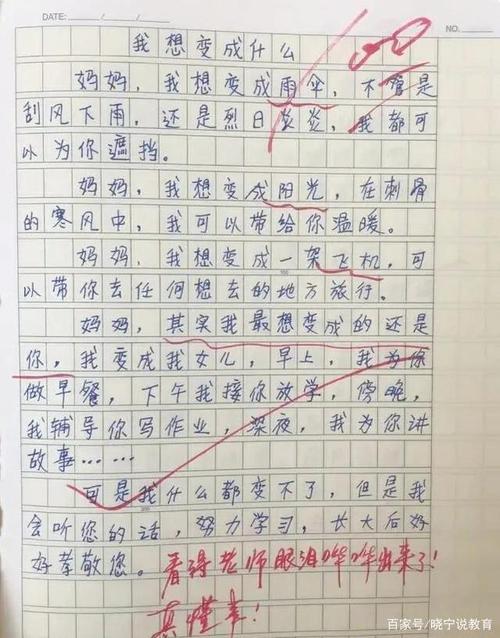 DATE:
NO.
我想变成什么
妈妈，我想变成雨伞，不管是
刮风下雨，还是烈日炎炎，我都可
以为你遮挡。
妈妈，我想变成阳光，在刺骨
的寒风中，我可以带给你温暖。
妈妈，我想变成一架飞机，可
以带你去任何想去的地方旅行。
妈妈，其实我最想变成的还是
你，我变成我女儿，早上，我为你
做早餐，下午我接你放学，傍晚，
我辅导你写作业，深夜，我为你讲
故事……
可是我什么都变不了，但是我
会听您的话，努力学习，长大后好
好孝敬您。
看得老师眼泪哗哗出来了！
真懂事！
百家号/晓宁说教育